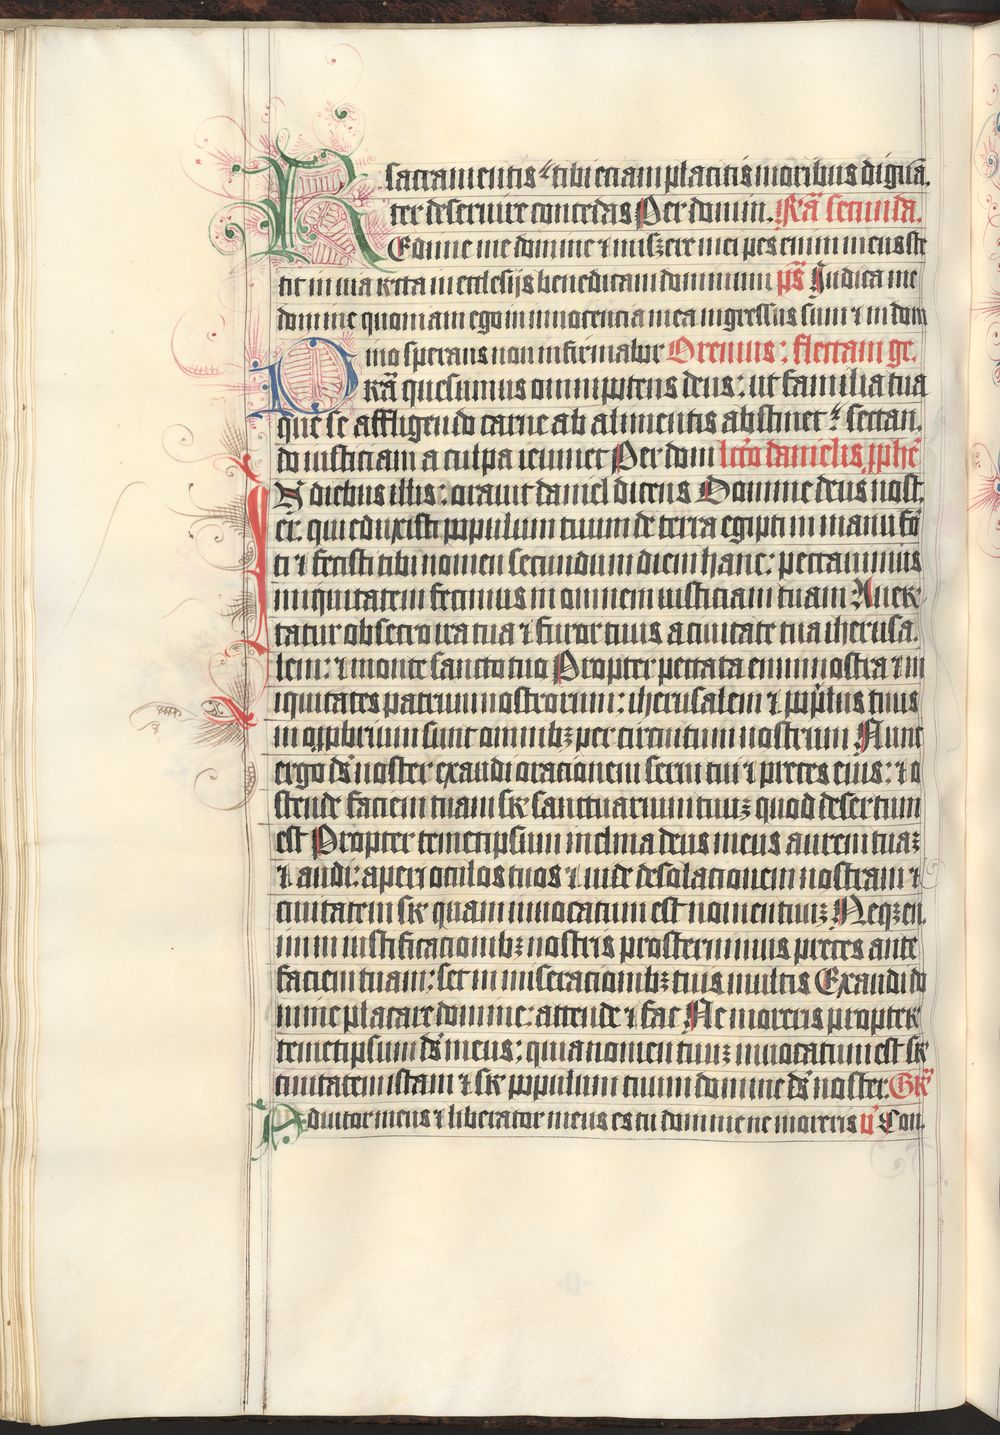 sacramentis ⁊ tibi etiam placitis moribus dignā
ter deseruire concedas Per domin. Fēa secunda.
REdime me domine ⁊ miserere mei pes enim meus ste
tit in uia recta in ecclesijs benedicam dominum ps̄ Iudica me
domine quoniam ego in innocencia mea ingressus sum ⁊ in dom
ino sperans non infirmabor Oremus: flectam ge.
PRēa quesumus omnipotens deus: ut familia tua
que se affligendo carne ab alimentis abstinet ⁊ sectan.
do iusticiam a culpa ieiunet Per dom lc̄to danielis p̄phe
IN diebus illis: orauit daniel dicens Domine deus nost.
er. qui eduxisti populum tuum de terra egipti in manu fo
ti ⁊ fecisti tibi nomen secundum diem hanc: peccauimus
iniquitatem fecimus in omnem iusticiam tuam Auer
tatur obsecro ira tua ⁊ furor tuus a ciuitate tua iherusa.
lem: ⁊ monte sancto tuo Propter peccata enim nostra ⁊ in
iquitates patrum nostrorum: iherusalem ⁊ pp̄lus tuus
in opprobrium sunt omnibꝫ per circuitum nostrum Nunc
ergo ds̄ noster exaudi oracionem serui tui ⁊ preces eius: ⁊ o
stende faciem tuam sr̄ sanctuarium tuuꝫ quod desertum
est Propter temetipsum inclina deus meus aurem tuaꝫ
⁊ audi: aperi oculos tuos ⁊ uide desolacionem nostram ⁊
ciuitatem sr̄ quam inuocatum est nomen tuuꝫ Neqꝫ en.
im in iustificacionibꝫ nostris prosternimus preces ante
faciem tuam: set in miseracionibꝫ tuis multis Exaudi do
mine placare domine: attende ⁊ fac Ne moreris propter
temetipsum ds̄ meus: quia nomen tuuꝫ inuocatum est sr̄
ciuitatem istam ⁊ sr̄ populum tuum domine ds̄ noster. Gr̄
Adiutor meus ⁊ liberator meus es tu domine ne moreris v̄ Con.